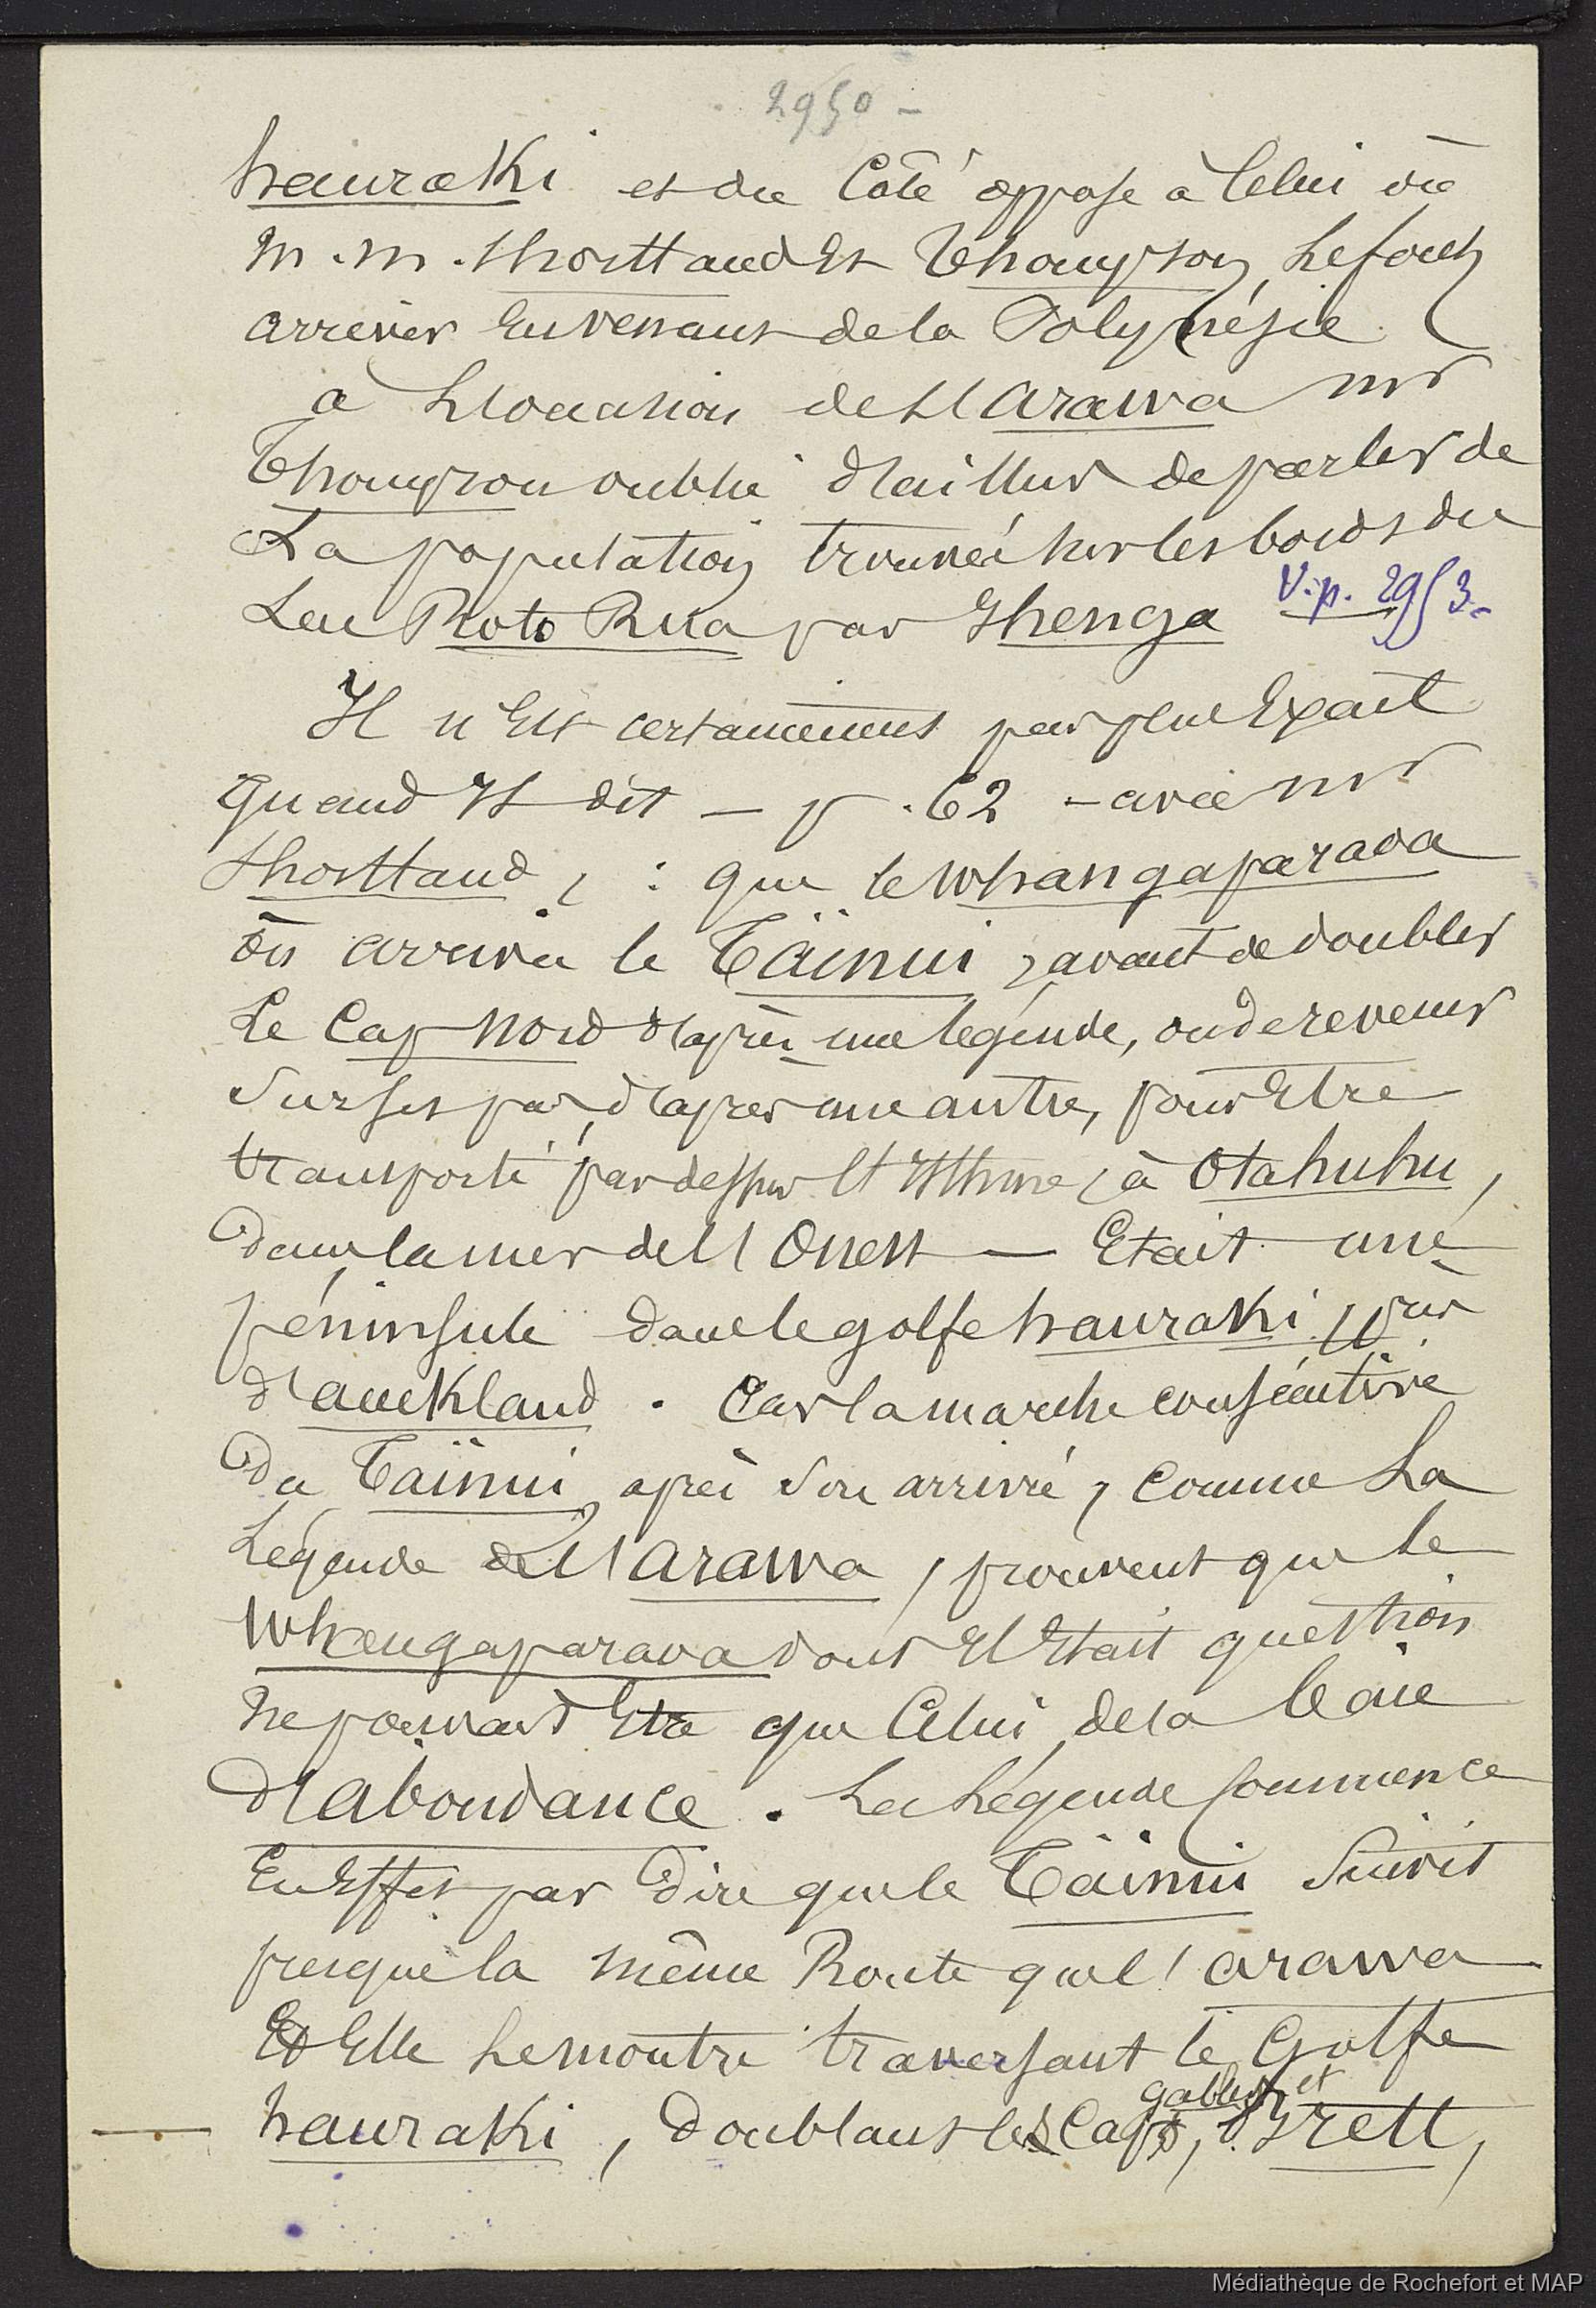 2950 -
hauraki et du Côté opposé à Celui où
M. M. Shortland Et Thompson, Le font
arriver En venant de la Polynésie.
à L'occasion de l'arawa Mr
Thompson oublie d'ailleurs de parler de
La population trouvée sur les bords du
Lac Roto Rua par Ihenga V. p. 2953.
Il n'Est certainement pas plus Exact
quand Il dit — p. 62 — avec Mr
Shortland, : que le Whangaparaoa
où arriva le Täinui, avant de doubler
Le Cap Nord d'après une légende, ou de revenir
Sur ses pas, d'après une autre, pour Etre
transporté par dessus l'Isthme, à Otahuhu,
dans la mer de l'Ouest — Etait une
péninsule dans le golfe hauraki, près
d'auckland. Car la marche consécutive
Du Taïnui, après Son arrivée, comme La
Légende de l'arawa, prouvent que le
Whangaparaoa dont Il Etait question
Ne pouvait Etre que Celui de la baie
D'abondance. La Légende Commence
En Effet par Dire que le Täinui Suivit
presque la même Route que l'arawa
Et Elle Le montre traversant le Golfe
hauraki, Doublant les Caps, gabler et Brett,
Médiathèque de Rochefort et MAP